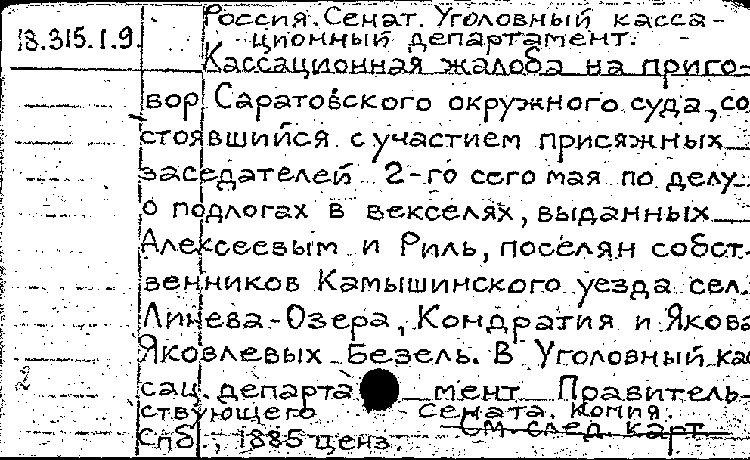 Россия. Сенат. Уголовный касса-
18.315.1.9.
ционный департамент.
Кассационная жалоба на приго-
вор Саратовского окружного суда, со
стоявшийся с участием присяжных
заседателей 2-го сего мая по делу
о подлогах в векселях, выданных
Алексеевым и Риль, поселян собст-
венников Камышинского уезда сел.
Линева-Озера, Кондратия и Якова
Яковлевых Безель. В Уголовный кас
сац. департамент Правитель-
ствующего Сената. Копия.
См след карт
Спб., 1885 ценз.